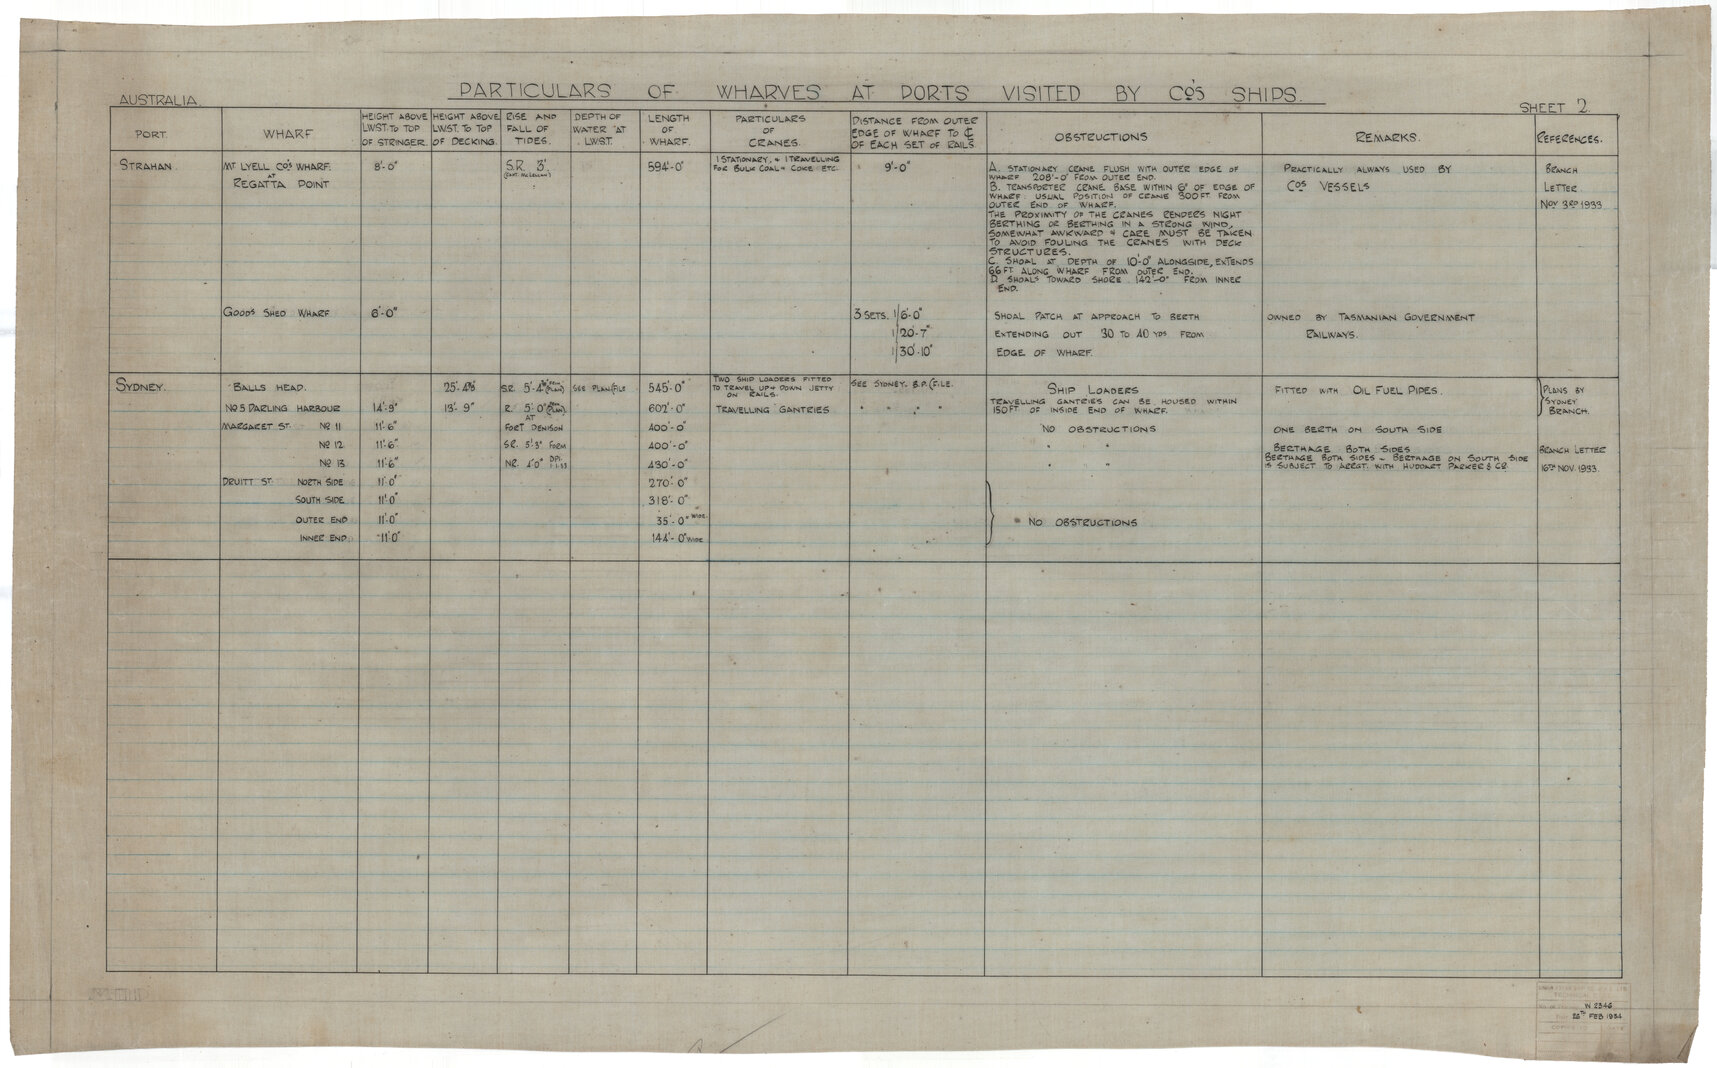 AUSTRALIA.
PARTICULARS OF WHARVES AT PORTS VISITED BY COS SHIPS.
SHEET 2.
PORT.
WHARF
HEIGHT ABOVE
LWST. TO TOP
OF STRINGER.
HEIGHT ABOVE
LWST. TO TOP
OF DECKING.
RISE AND
FALL OF
TIDES.
DEPTH OF
WATER AT
LWST.
LENGTH
OF
WHARF.
PARTICULARS
OF
CRANES.
DISTANCE FROM OUTER
EDGE OF WHARF TO ℄
OF EACH SET OF RAILS.
OBSTRUCTIONS
REMARKS.
REFERENCES.
STRAHAN.
MT LYELL CO'S WHARF.
AT
REGATTA POINT
8'-0"
S.R. 3'.
594'-0"
1 STATIONARY, & 1 TRAVELLING
FOR BULK COAL & COKE ETC.
9'-0"
A. STATIONARY CRANE FLUSH WITH OUTER EDGE OF
WHARF 208'-0" FROM OUTER END.
B. TRANSPORTER CRANE BASE WITHIN 6" OF EDGE OF
WHARF: USUAL POSITION OF CRANE 300 FT FROM
OUTER END OF WHARF.
THE PROXIMITY OF THE CRANES RENDERS NIGHT
BERTHING OR BERTHING IN A STRONG WIND,
SOMEWHAT AWKWARD & CARE MUST BE TAKEN
TO AVOID FOULING THE CRANES WITH DECK
STRUCTURES.
C. SHOAL AT DEPTH OF 10'-0" ALONGSIDE, EXTENDS
66 FT ALONG WHARF FROM OUTER END.
D. SHOALS TOWARD SHORE 142'-0" FROM INNER
END.
PRACTICALLY ALWAYS USED BY
COS VESSELS
BRANCH
LETTER
NOV 3RD 1933
GOODS SHED WHARF
6'-0"
3 SETS. 1/6'-0"
1/20'-7"
1/30'-10"
SHOAL PATCH AT APPROACH TO BERTH
EXTENDING OUT 30 TO 40 YDS FROM
EDGE OF WHARF.
OWNED BY TASMANIAN GOVERNMENT
RAILWAYS.
SYDNEY.
BALLS HEAD.
25'-4½"
S.R. 5'-4"
SEE PLAN/FILE
545'-0"
TWO SHIP LOADERS FITTED
TO TRAVEL UP & DOWN JETTY
ON RAILS.
SEE SYDNEY. B.P./FILE.
SHIP LOADERS
FITTED WITH OIL FUEL PIPES.
PLANS BY
SYDNEY
BRANCH.
NO 5 DARLING HARBOUR
14'-9"
13'-9"
R. 5'-0"
AT
602'-0"
TRAVELLING GANTRIES
" " " "
TRAVELLING GANTRIES CAN BE HOUSED WITHIN
150 FT OF INSIDE END OF WHARF.
MARGARET ST. NO 11
11'-6"
FORT DENISON
400'-0"
NO OBSTRUCTIONS
ONE BERTH ON SOUTH SIDE
NO 12
11'-6"
S.R. 5'-3" FORM
400'-0"
" "
BERTHAGE BOTH SIDES
BRANCH LETTER
NO 13
11'-6"
NR. 4'-0"
430'-0"
" "
BERTHAGE BOTH SIDES - BERTHAGE ON SOUTH SIDE
IS SUBJECT TO ARRGT. WITH HUDDART PARKER & CO.
16TH NOV. 1933.
DRUITT ST. NORTH SIDE
11'-0"
270'-0"
SOUTH SIDE
11'-0"
318'-0"
OUTER END
11'-0"
35'-0" WIDE.
NO OBSTRUCTIONS
INNER END
11'-0"
144'-0" WIDE
W 2346
26TH FEB 1934